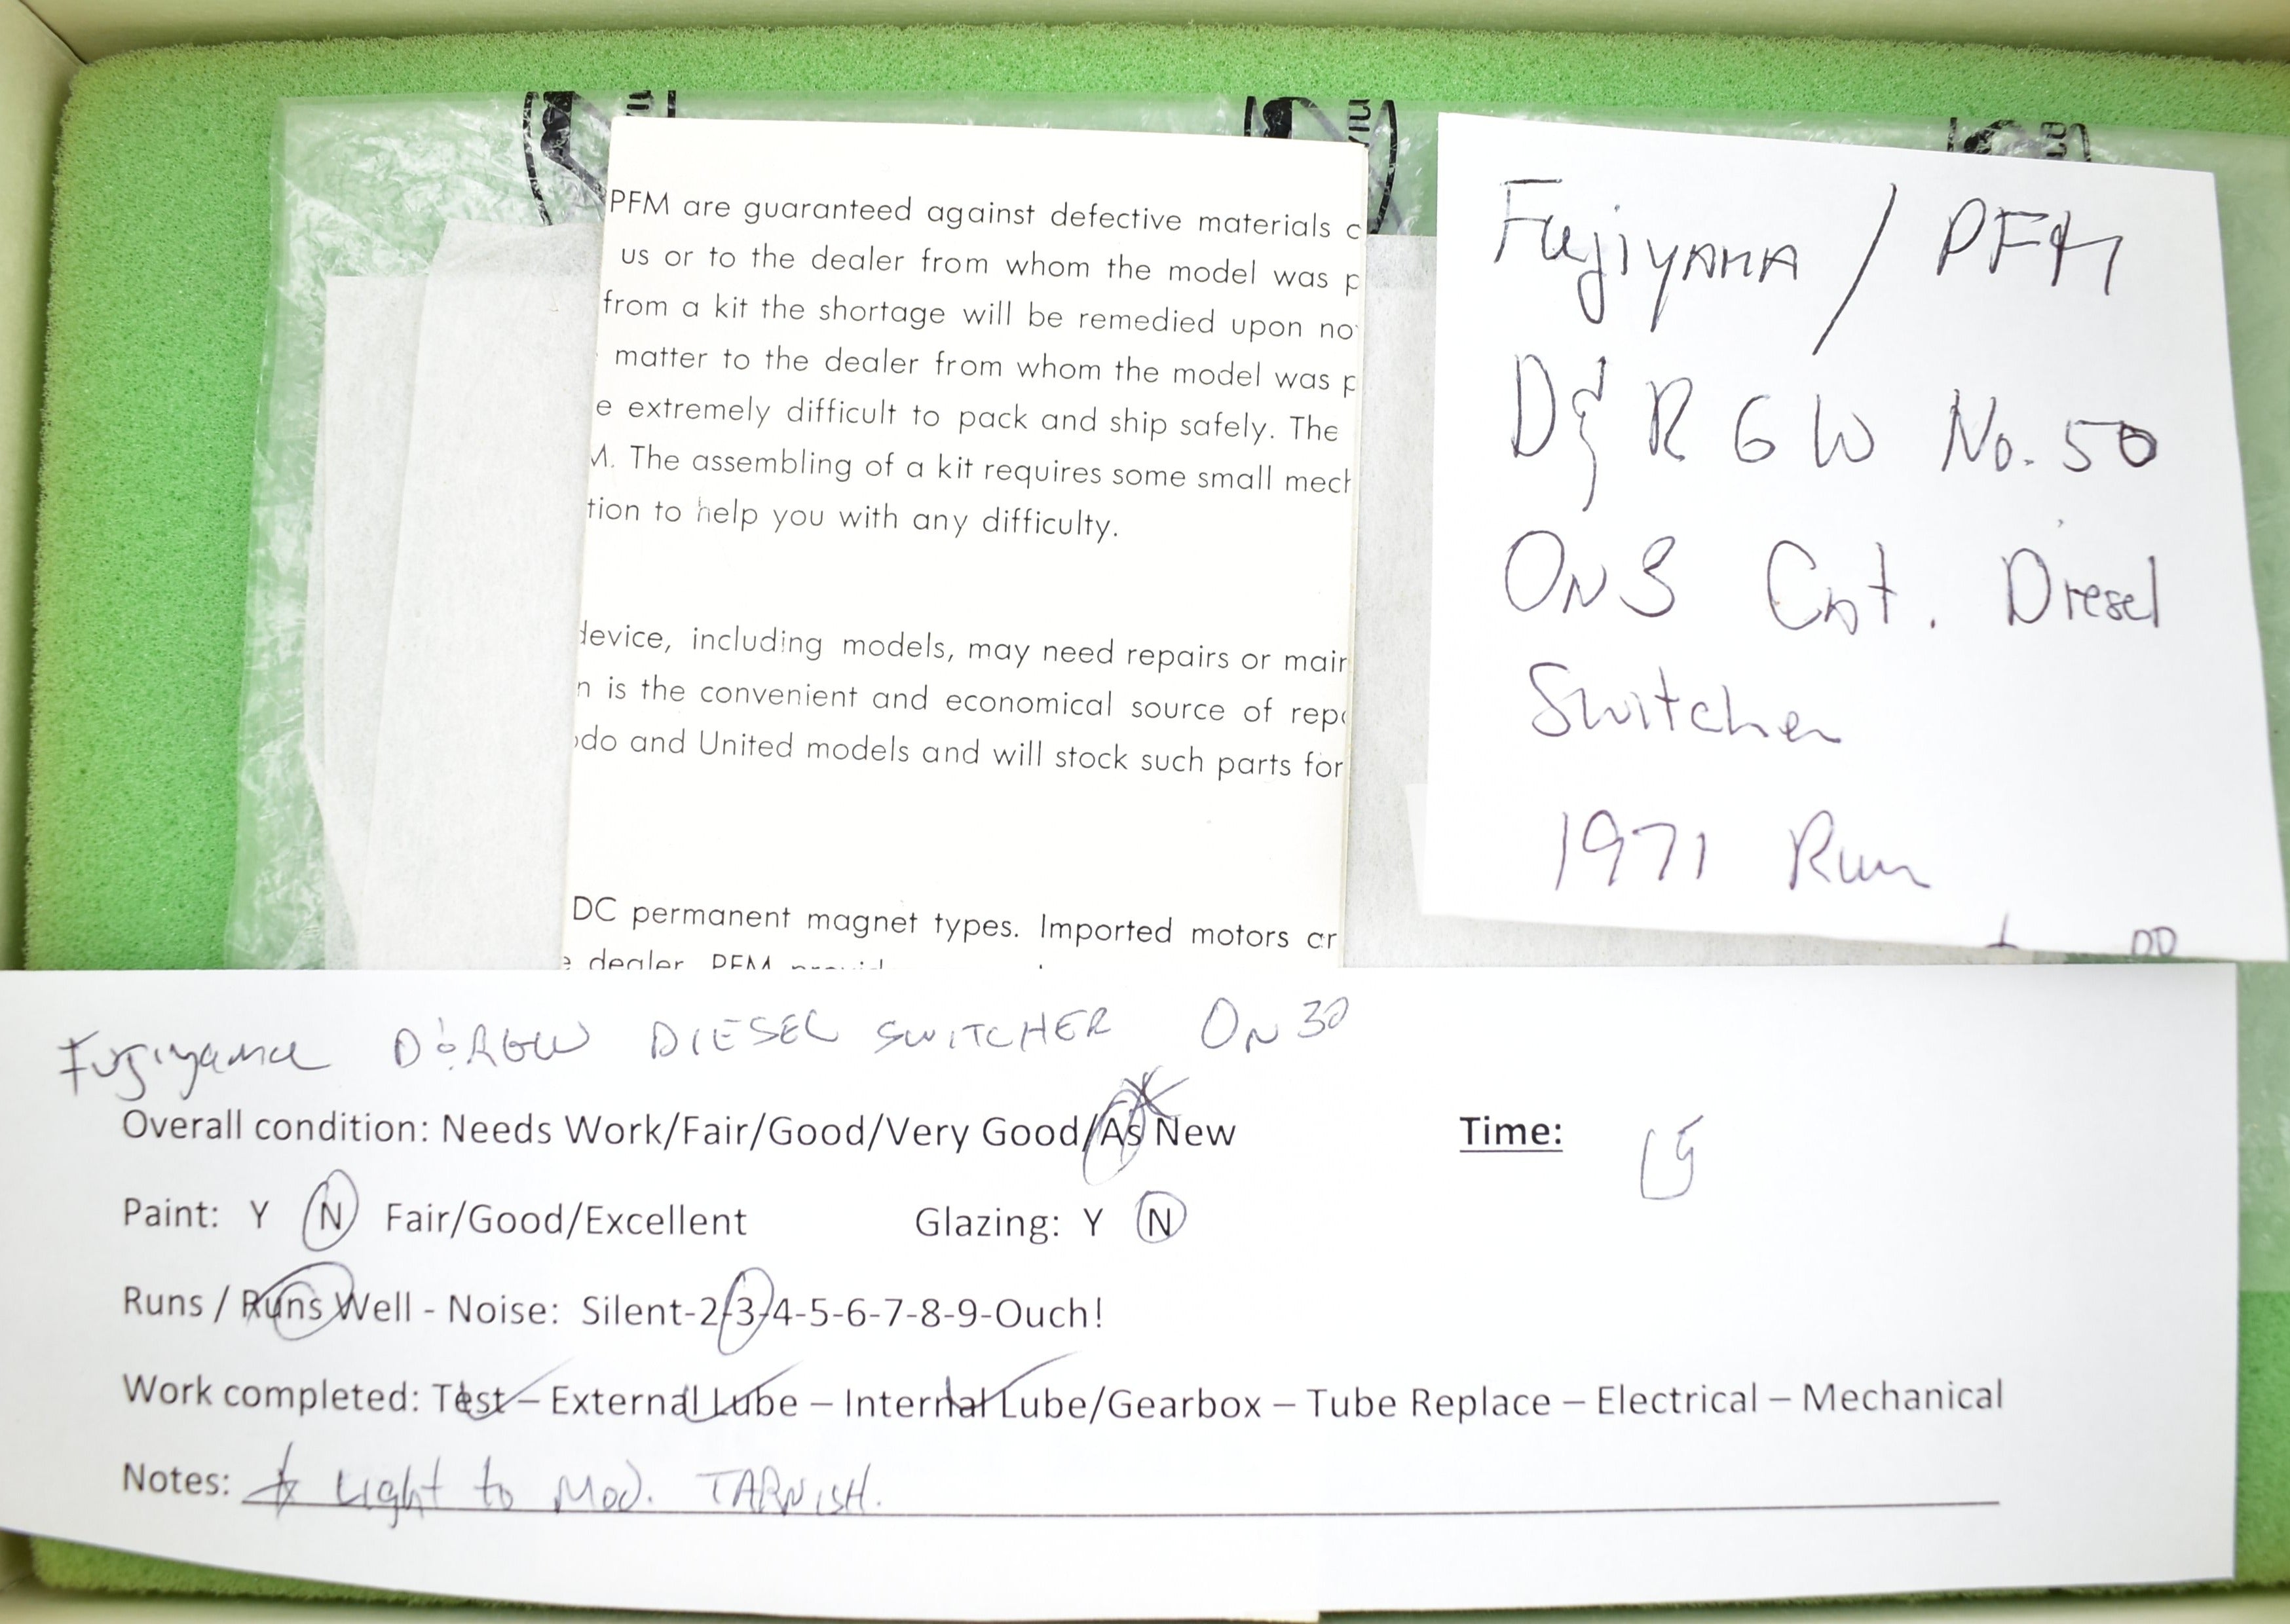 PFM are guaranteed against defective materials
us or to the dealer from whom the model was
from a kit the shortage will be remedied upon
matter to the dealer from whom the model was
extremely difficult to pack and ship safely. The
The assembling of a kit requires some small
to help you with any difficulty.
including models, may need repairs or
is the convenient and economical source of
and United models and will stock such parts for
DC permanent magnet types. Imported motors
dealer. PFM
Fujiyama / PFM
D&RGW No. 50
On3 Cnt. Diesel
Switcher
1971 Run
Fujiyama D&RGW DIESEL SWITCHER On30
Overall condition: Needs Work/Fair/Good/Very Good/As New
Time:
Paint: Y N Fair/Good/Excellent Glazing: Y N
Runs / Runs Well - Noise: Silent-2-3-4-5-6-7-8-9-Ouch!
Work completed: Test – External Lube – Internal Lube/Gearbox – Tube Replace – Electrical – Mechanical
Notes: * Light to Mod. TARNISH.